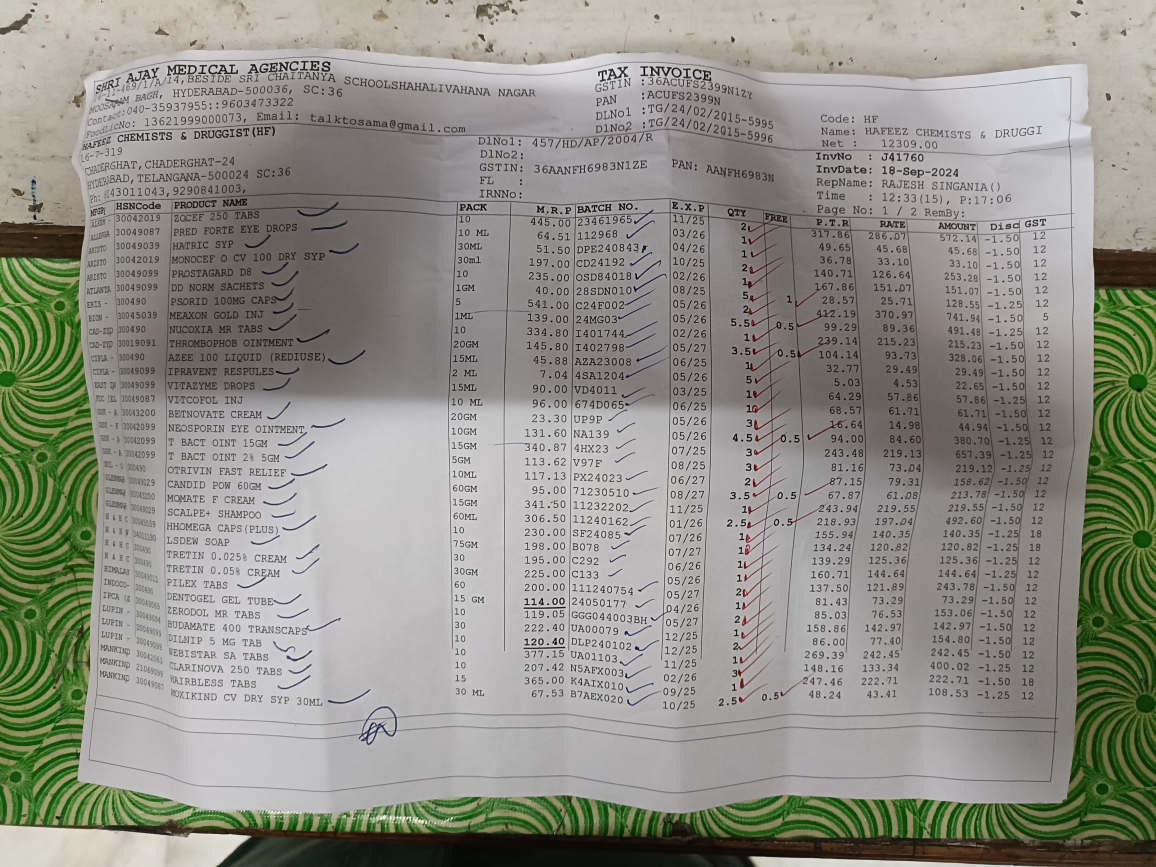 SHRI AJAY MEDICAL AGENCIES
16-11-469/1/A/14,BESIDE SRI CHAITANYA SCHOOLSHAHALIVAHANA NAGAR
MOOSARAM BAGH, HYDERABAD-500036, SC:36
Contact:040-35937955::9603473322
FoodLicNo: 13621999000073, Email: talktosama@gmail.com
TAX INVOICE
GSTIN :36ACUFS2399N1ZY
PAN :ACUFS2399N
DLNo1 :TG/24/02/2015-5995
DLNo2 :TG/24/02/2015-5996
HAFEEZ CHEMISTS & DRUGGIST(HF)
16-7-319
CHADERGHAT,CHADERGHAT-24
HYDERABAD,TELANGANA-500024 SC:36
Ph: 8143011043,9290841003,
DlNo1: 457/HD/AP/2004/R
DlNo2:
GSTIN: 36AANFH6983N1ZE PAN: AANFH6983N
FL :
IRNNo:
Code: HF
Name: HAFEEZ CHEMISTS & DRUGGI
Net : 12309.00
InvNo : J41760
InvDate: 18-Sep-2024
RepName: RAJESH SINGANIA()
Time : 12:33(15), P:17:06
Page No: 1 / 2 RemBy:
MFGBY HSNCode PRODUCT NAME PACK M.R.P BATCH NO. E.X.P QTY FREE P.T.R RATE AMOUNT Disc GST
30042019 ZOCEF 250 TABS 10 445.00 23461965 11/25 2 317.86 286.07 572.14 -1.50 12
30049087 PRED FORTE EYE DROPS 10 ML 64.51 112968 03/26 1 49.65 45.68 45.68 -1.50 12
ARISTO 30049039 HATRIC SYP 30ML 51.50 DPE240843 04/26 1 36.78 33.10 33.10 -1.50 12
ARISTO 30042019 MONOCEF O CV 100 DRY SYP 30ml 197.00 CD24192 10/25 2 140.71 126.64 253.28 -1.50 12
ARISTO 30049099 PROSTAGARD D8 10 235.00 OSD84018 02/26 1 167.86 151.07 151.07 -1.50 12
ATLANTA 30049099 DD NORM SACHETS 1GM 40.00 28SDN010 08/25 5 1 28.57 25.71 128.55 -1.25 12
ERIS - 300490 PSORID 100MG CAPS 5 541.00 C24F002 05/26 2 412.19 370.97 741.94 -1.50 5
BION - 30045039 MEAXON GOLD INJ 1ML 139.00 24MG03 05/26 5.5 0.5 99.29 89.36 491.48 -1.25 12
300490 NUCOXIA MR TABS 10 334.80 I401744 02/26 1 239.14 215.23 215.23 -1.50 12
30019091 THROMBOPHOB OINTMENT 20GM 145.80 I402798 05/27 3.5 0.5 104.14 93.73 328.06 -1.50 12
CIPLA - 300490 AZEE 100 LIQUID (REDIUSE) 15ML 45.88 AZA23008 06/25 1 32.77 29.49 29.49 -1.50 12
CIPLA - 30049099 IPRAVENT RESPULES 2 ML 7.04 4SA1204 05/26 5 5.03 4.53 22.65 -1.50 12
30049099 VITAZYME DROPS 15ML 90.00 VD4011 03/25 1 64.29 57.86 57.86 -1.25 12
30049087 VITCOFOL INJ 10 ML 96.00 674D065 06/25 1 68.57 61.71 61.71 -1.50 12
30043200 BETNOVATE CREAM 20GM 23.30 UP9P 05/26 3 16.64 14.98 44.94 -1.50 12
30042099 NEOSPORIN EYE OINTMENT, 10GM 131.60 NA139 05/26 4.5 0.5 94.00 84.60 380.70 -1.25 12
30042099 T BACT OINT 15GM 15GM 340.87 4HX23 07/25 3 243.48 219.13 657.39 -1.50 12
30042099 T BACT OINT 2% 5GM 5GM 113.62 V97F 08/25 3 81.16 73.04 219.12 -1.25 12
300490 OTRIVIN FAST RELIEF 10ML 117.13 PX24023 06/27 2 87.15 79.31 158.62 -1.50 12
30049029 CANDID POW 60GM 60GM 95.00 71230510 08/27 3.5 0.5 67.87 61.08 213.78 -1.50 12
30043200 MOMATE F CREAM 15GM 341.50 11232202 11/25 1 243.94 219.55 219.55 -1.50 12
30049029 SCALPE+ SHAMPOO 60ML 306.50 11240162 01/26 2.5 0.5 218.93 197.04 492.60 -1.50 12
HHOMEGA CAPS(PLUS) 10 230.00 SF24085 07/26 1 155.94 140.35 140.35 -1.25 18
LSDEW SOAP 75GM 198.00 B078 07/27 1 134.24 120.82 120.82 -1.50 18
300490 TRETIN 0.025% CREAM 30 195.00 C292 06/26 1 139.29 125.36 125.36 -1.50 12
300490 TRETIN 0.05% CREAM 30GM 225.00 C133 05/26 1 160.71 144.64 144.64 -1.50 12
30049011 PILEX TABS 60 200.00 111240754 05/27 2 137.50 121.89 243.78 -1.50 12
300490 DENTOGEL GEL TUBE 15 GM 114.00 24050177 04/26 1 81.43 73.29 73.29 -1.50 12
30049069 ZERODOL MR TABS 10 119.05 GGG044003BH 05/27 2 85.03 76.53 153.06 -1.50 12
LUPIN - 30049099 BUDAMATE 400 TRANSCAPS 30 222.40 UA00079 12/25 1 158.86 142.97 142.97 -1.50 12
LUPIN - 30049099 DILNIP 5 MG TAB 10 120.40 DLP240102 12/25 2 86.00 77.40 154.80 -1.50 12
LUPIN - 30049099 NEBISTAR SA TABS 10 377.15 UA01103 11/25 1 269.39 242.45 242.45 -1.50 12
MANKIND 30042063 CLARINOVA 250 TABS 10 207.42 N5AFX003 02/26 3 148.16 133.34 400.02 -1.50 12
MANKIND 21069099 HAIRBLESS TABS 15 365.00 K4AIX010 09/25 1 247.46 222.71 222.71 -1.50 18
MANKIND 30049087 MOXIKIND CV DRY SYP 30ML 30 ML 67.53 B7AEX020 10/25 2.5 0.5 48.24 43.41 108.53 -1.25 12